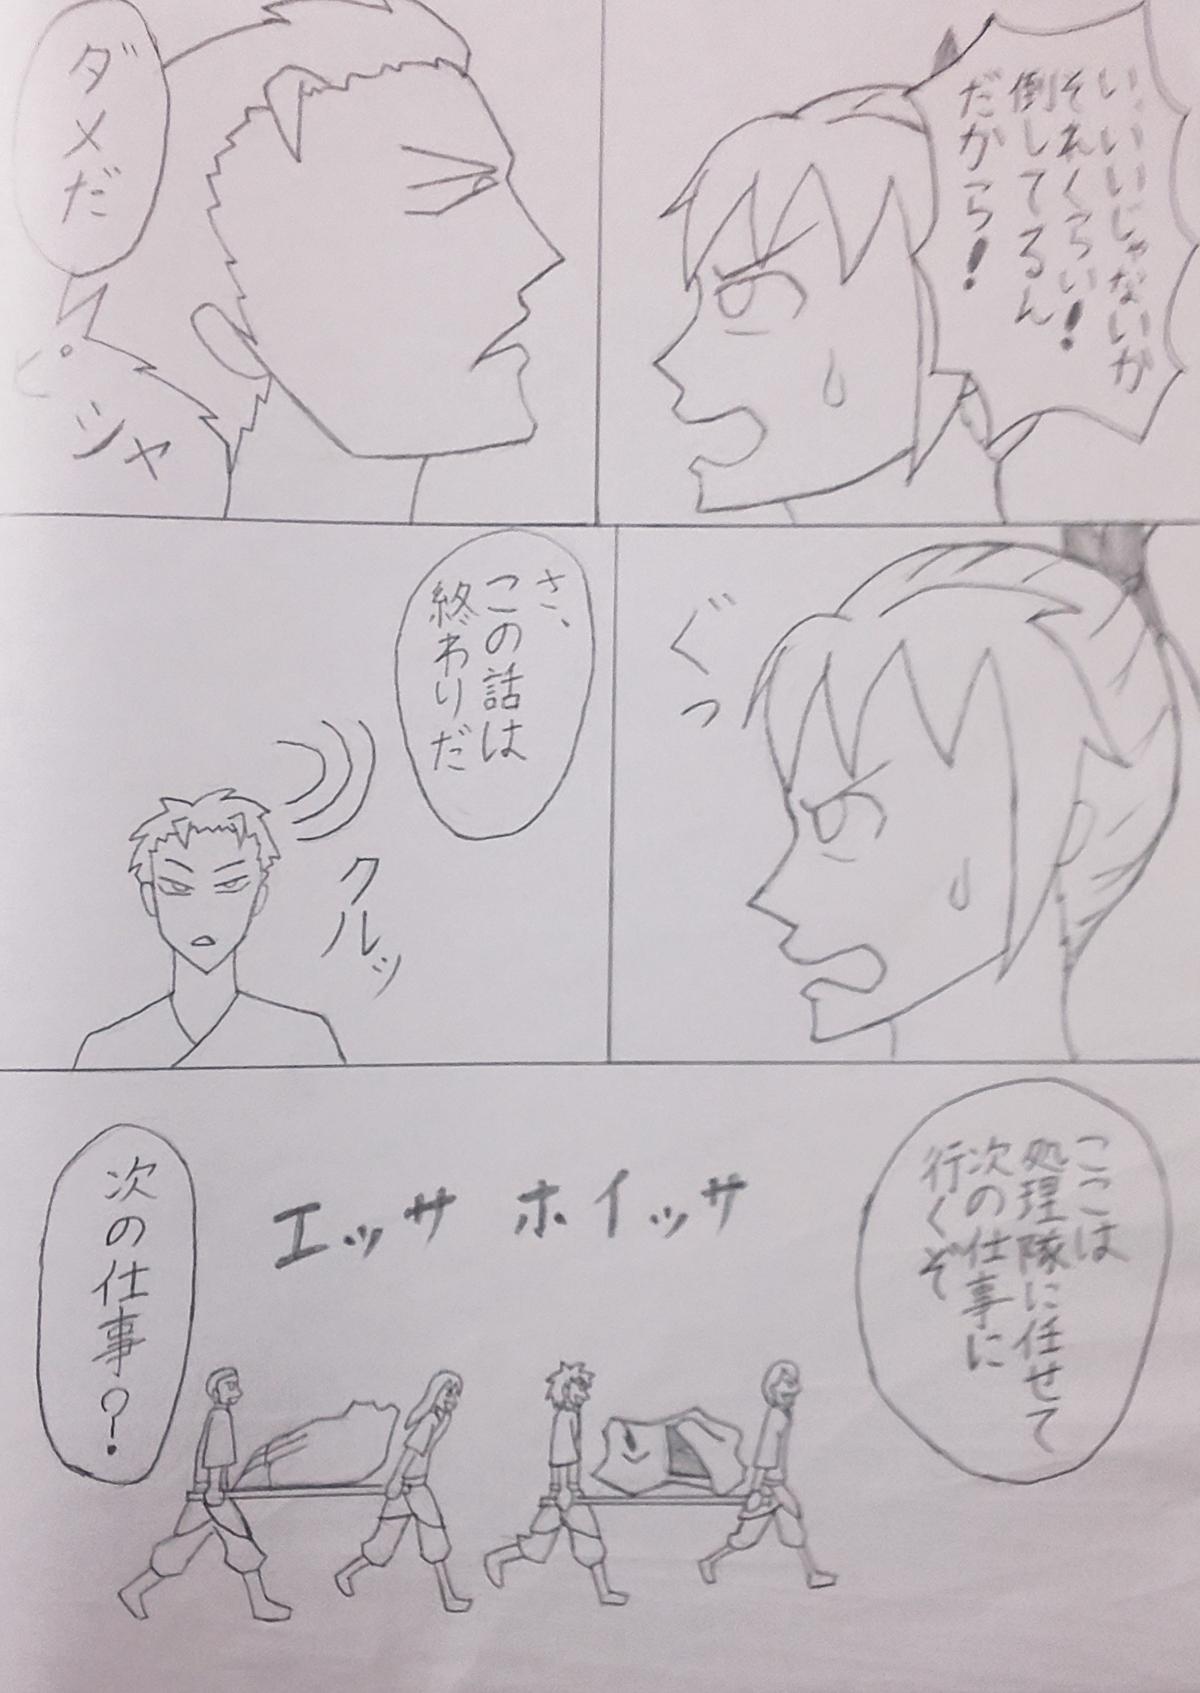 い、いいじゃないか
それくらい！
倒してるん
だから！
ダメだ
ピシャ
ぐっ
さ、
この話は
終わりだ
クルッ
ここは
処理隊に任せて
次の仕事に
行くぞ
エッサ ホイッサ
次の仕事？